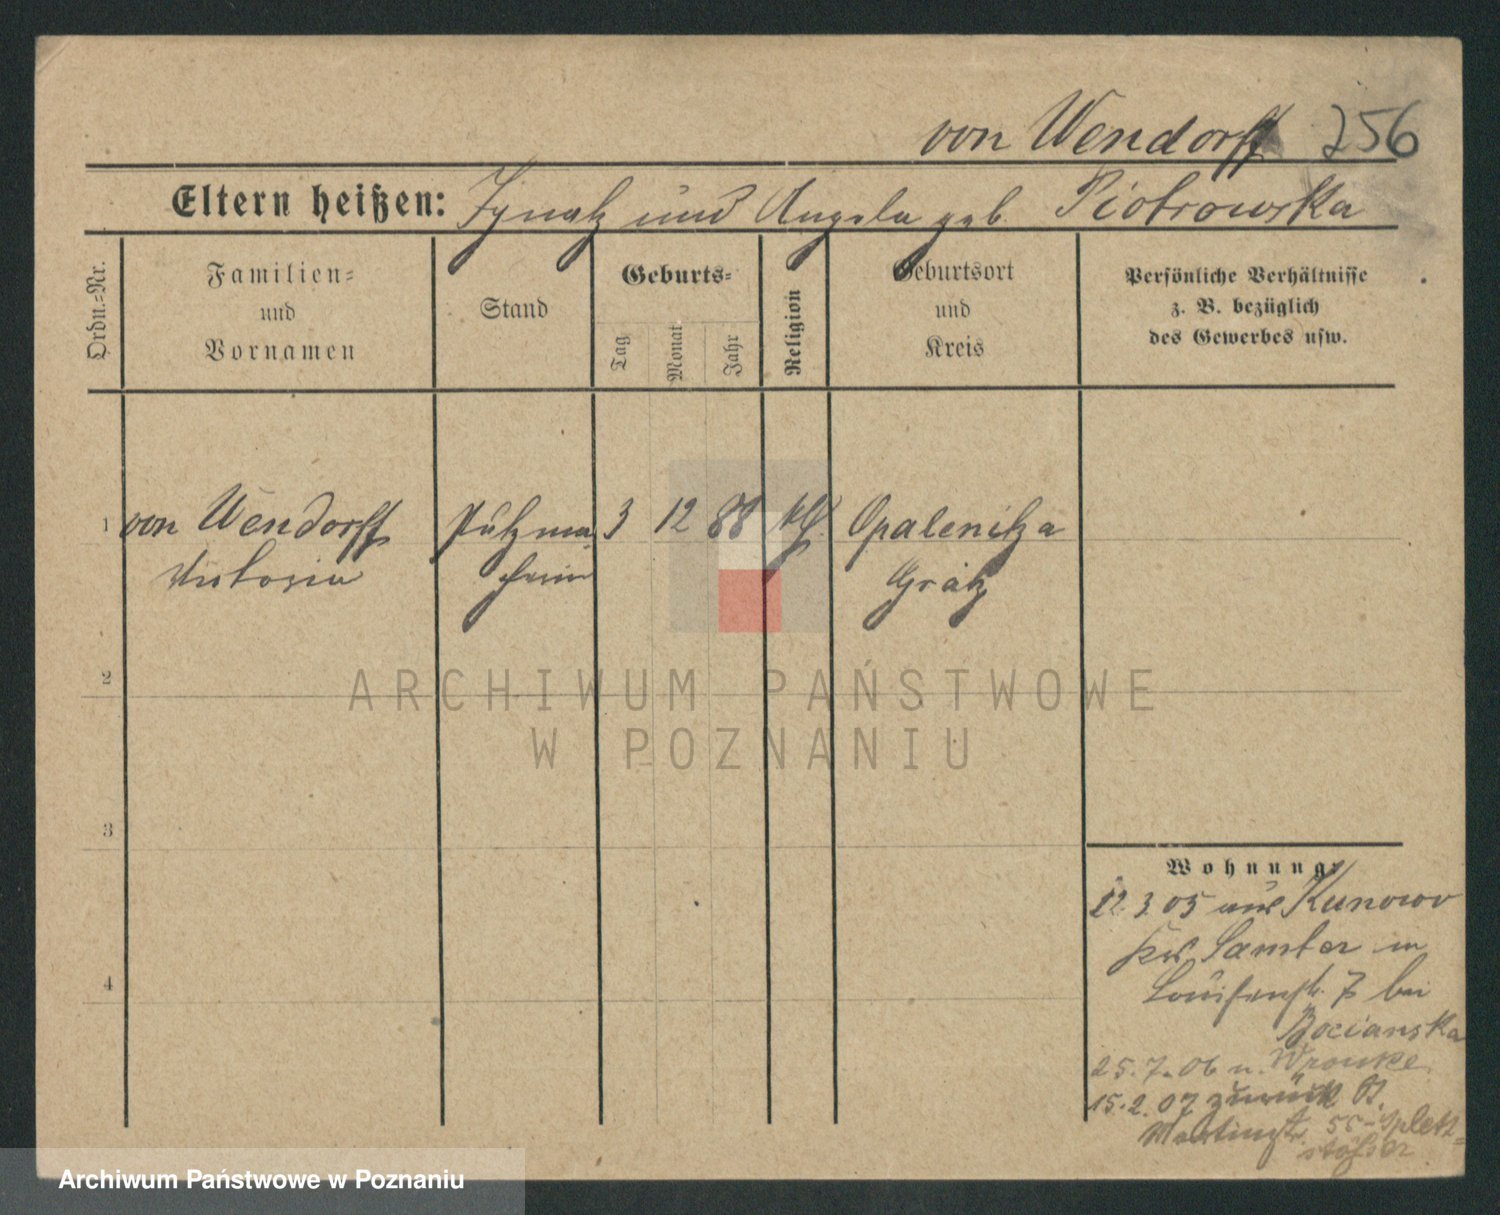 von Wendorff 256
Eltern heißen: Ignatz und Angela geb. Piotrowska
Ordn.=Nr.
Familien=
und
Vornamen
Stand
Geburts=
Tag
Monat
Jahr
Religion
Geburtsort
und
Kreis
Persönliche Verhältnisse
z. B. bezüglich
des Gewerbes usw.
1 von Wendorff Putzma 3 12 88 kth. Opalenitza
Viktoria cherin Grätz
2
ARCHIWUM PAŃSTWOWE
W POZNANIU
3
4
Wohnung:
12.3.05 aus Kunowo
Krs. Samter in
Louisenstr. 7 bei
Bocianska
25.7.06 n. Wronke
15.2.07 zurück
Martinstr. 55
Archiwum Państwowe w Poznaniu